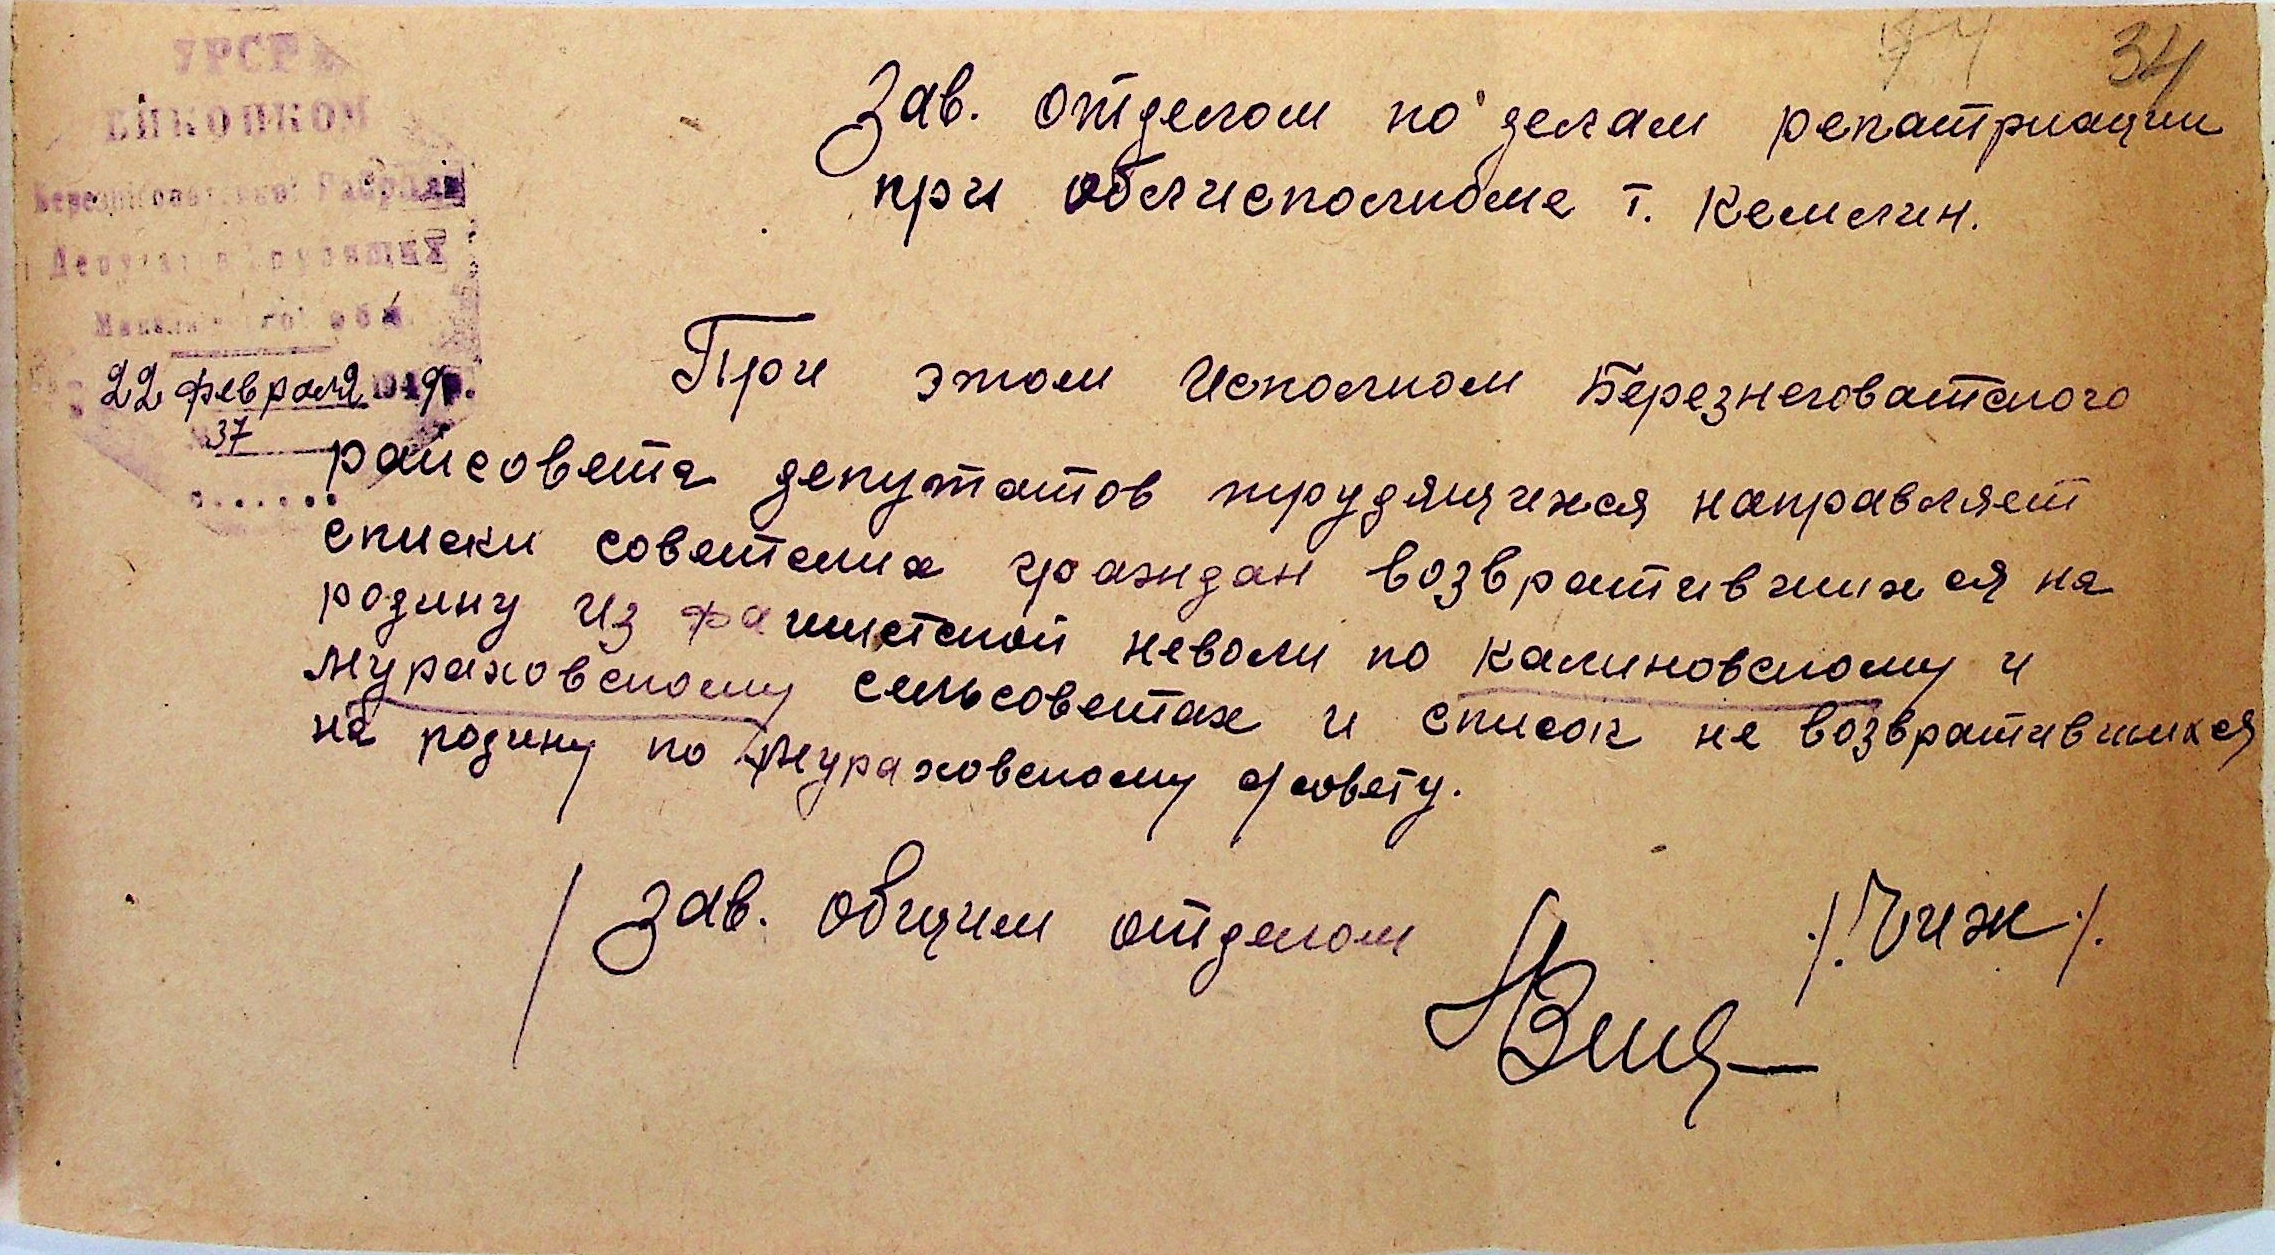 34
УРСР
ВИКОНКОМ
Депутатів Трудящих
22 февраля 1949р.
37
Зав. отделом по делам репатриации
при облисполкоме т. Кемелин.
При этом Исполком Березнеговатского
райсовета депутатов трудящихся направляет
списки советских граждан возвратившихся на
родину из фашистской неволи по Калиновскому и
Мураховскому сельсоветах и список не возвратившихся
на родину по Мураховскому с/совету.
/ Зав. общим отделом
/. Чиж /.